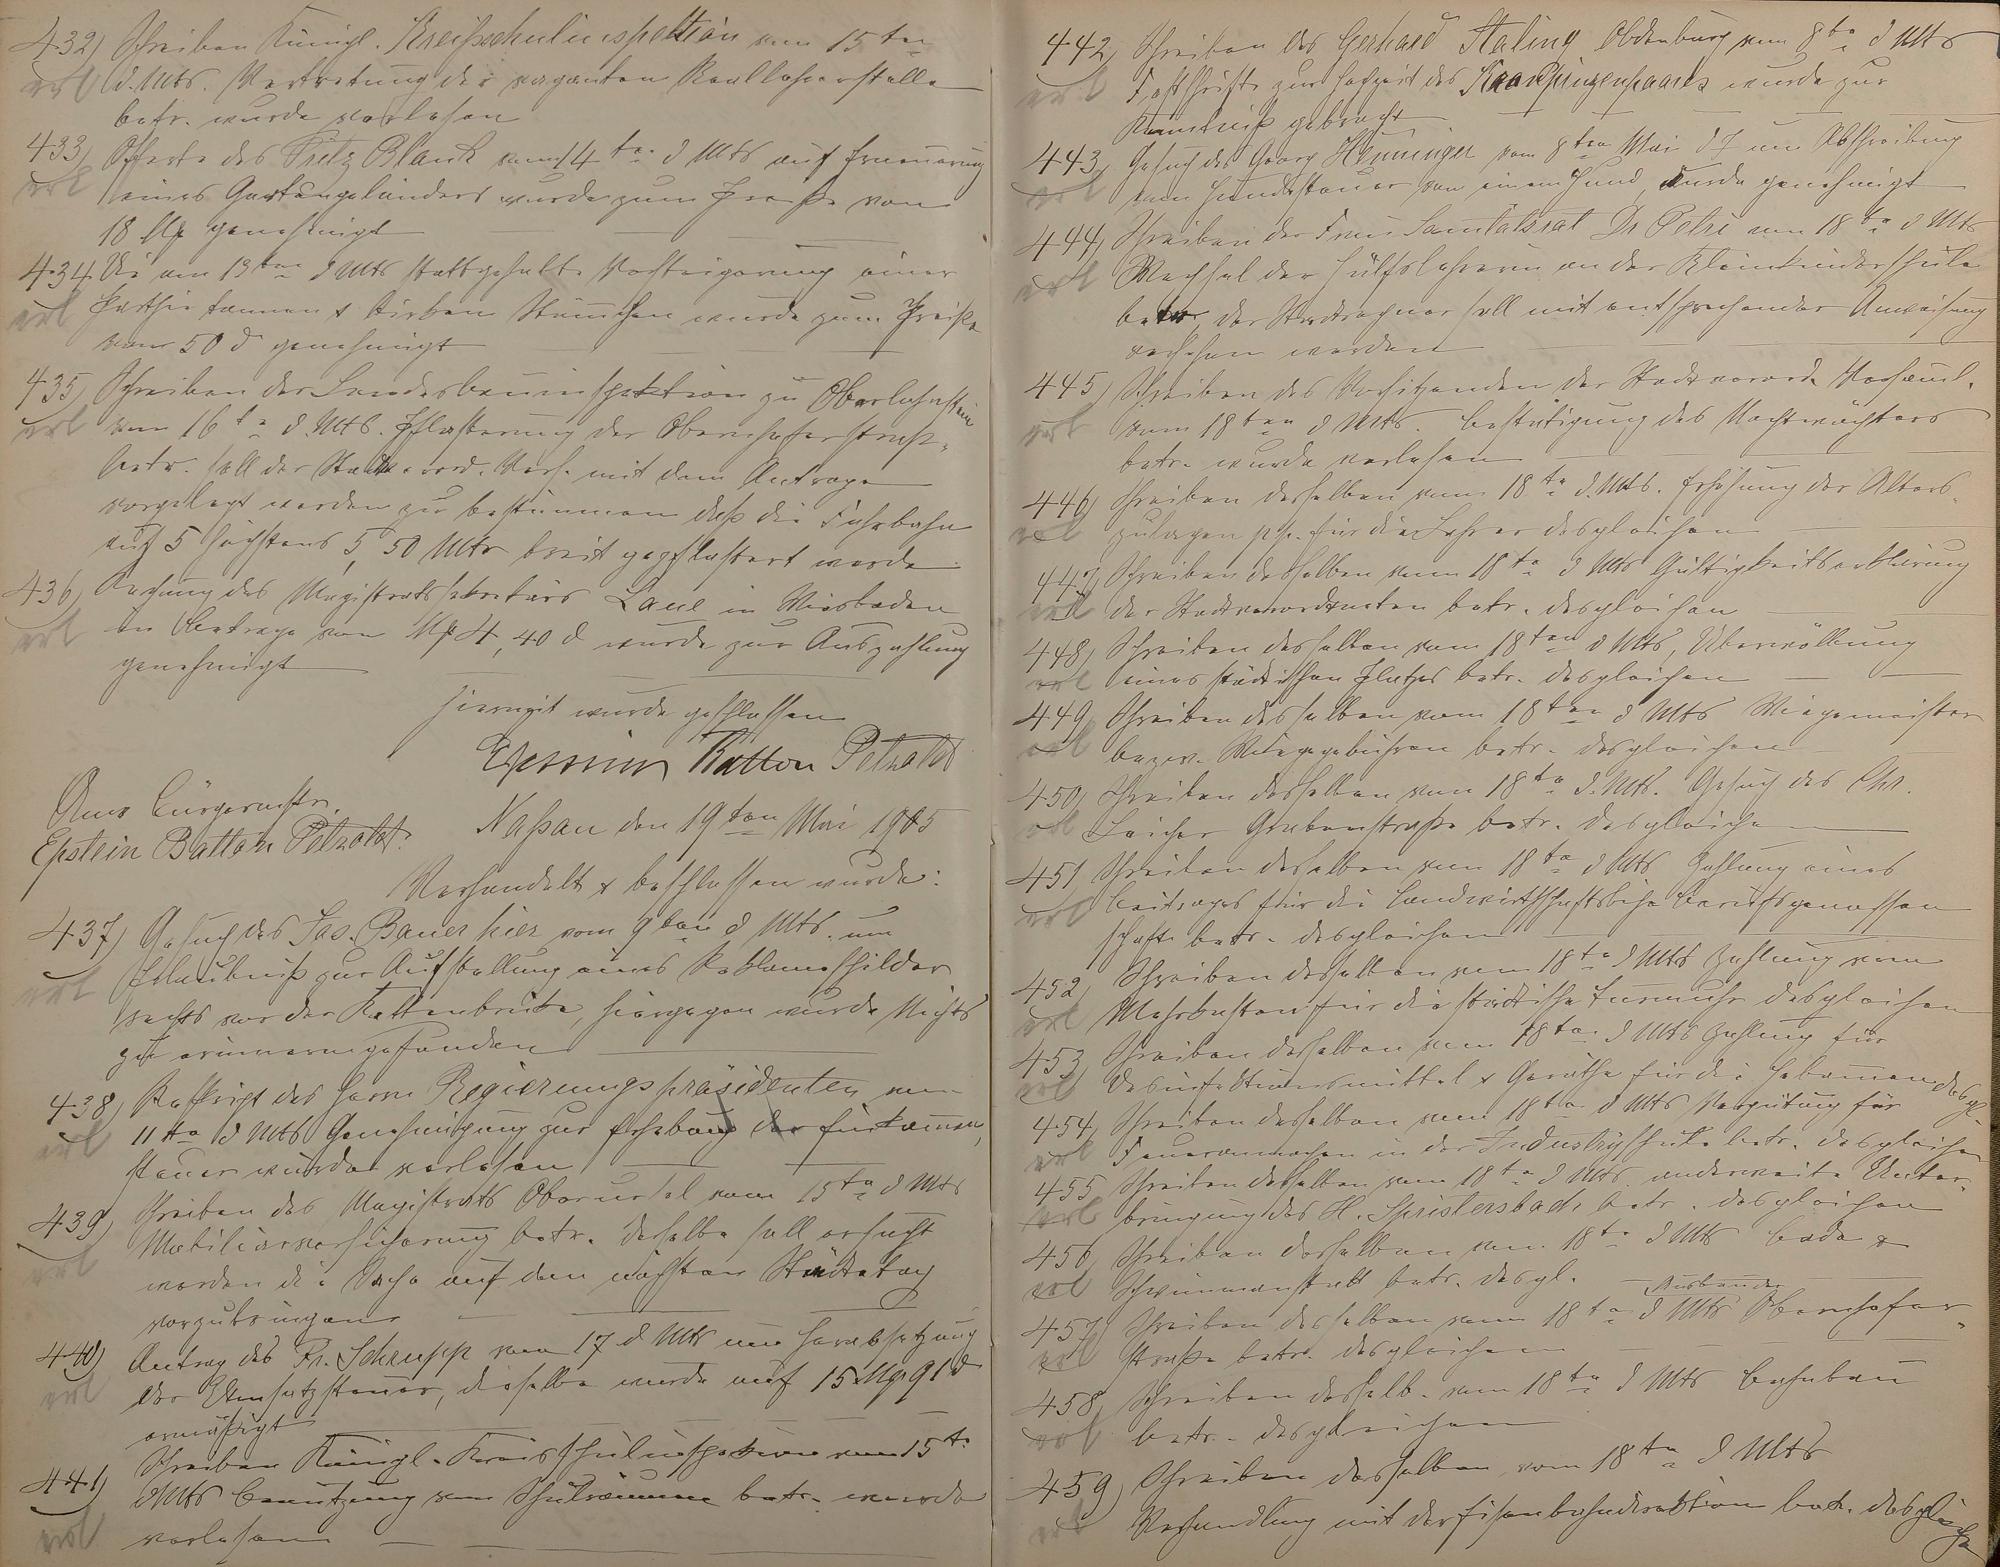 432) Schreiben Königl. Kreißschulinspektion vom 15ten
erl d. Mts. Vertretung der vaganten Reallehrerstelle
betr. wurde verlesen
433) Offerte des Fritz Blank vom 14ten d Mts auf Erneuerung
erl eines Gartengeländers wurde zum Preiße von
18 M genehmigt
434 Die am 13ten d Mts stattgehabte Versteigerung einer
erl Parthie tannen & Stämmchen wurde zum Preiße
von 50 d genehmigt
435) Schreiben der Landesbauinspektion zu Oberlahnstein
erl vom 16ten d. Mts. Pflasterung der Obernhoferstraße
betr. soll der Stadtverord. Vers. mit dem Antrage
vorgelegt werden zu bestimmen daß die Fahrbahn
auf 5 höchstens 5,50 Mtr breit gepflastert werde
436) Rechnung des Magistratssekretärs Laue in Wiesbaden
erl im Betrage von M 4,40 d wurde zur Auszahlung
genehmigt
Hiermit wurde geschlossen
Epstein Batton Petzoldt
Bürgermstr.
Epstein Batton Petzoldt.
Naßau den 19ten Mai 1905
Verhandelt & beschlossen wurde:
437) Gesuch des Jas. Bauer hier vom 9ten d Mts. um
erl Erlaubniß zur Aufstellung eines Reklameschildes
rechts vor der Kettenbrücke, hiergegen wurde Nichts
zu erinnern gefunden
438) Reskript des Herrn Regierungspräsidenten vom
erl 11ten d Mts Genehmigung zur Erhebung der Einkommen,
steuer wurde verlesen
439) Schreiben des Magistrats Oberursel vom 15ten d Mts
erl Mobiliarversicherung betr. derselbe soll ersucht
werden die Sache auf dem nächsten Städtetag
vorzubringen
440) Antrag des Fr. Schrupp vom 17 d Mts um Herabsetzung
erl der Umsatzsteuer, dieselbe wurde auf 15 M 91 d
ermäßigt
441) Schreiben Königl. Kreisschulinspektion vom 15ten
erl d Mts Benutzung von Schulräumen betr. wurde
verlesen
442) Schreiben des Gerhard Staling Oldenburg vom 8ten d Mts
erl Festschrift zur Hochzeit des Kronprinzenpaares wurde zur
Kenntniß gebracht
443) Gesuch des Georg Henninger vom 8ten Mai d J um Abschreibung
erl von Hundesteuer von einem Hund, wurde genehmigt
444) Schreiben der Frau Sanitätsrat Dr Petri vom 18ten d Mts
erl Wechsel der Hülfslehrerin an der Kleinkinderschule
betr, der Stadtrechner soll mit entsprechender Anweisung
versehen werden
445) Schreiben des Vorsitzenden der Stadtverord. Versaml.
erl vom 18ten d Mts. Bestätigung des Nachtwächters
betr. wurde verlesen
446) Schreiben desselben vom 18ten d. Mts. Erhöhung der Alters-
erl zulagen pp. für die Lehrer desgleichen
447) Schreiben desselben vom 18ten d Mts Gültigkeitserklärung
erl der Stadtverordneten betr. desgleichen
448) Schreiben desselben vom 18ten d Mts, Überwölbung
erl eines städtischen Platzes betr. desgleichen
449) Schreiben desselben vom 18ten d Mts Wiegemeister
erl bezw. Wiegegebühren betr. desgleichen
450) Schreiben desselben vom 18ten d. Mts. Gesuch des Chr.
erl Leicher Grabenstraße betr. desgleichen
451 Schreiben desselben vom 18ten d Mts Zahlung eines
erl Beitrages für die Landwirthschaftliche Berufsgenossen
schaft betr. desgleichen
452) Schreiben desselben vom 18ten d Mts Zahlung von
erl Mehrkosten für die städtische Turmuhr desgleichen
453) Schreiben desselben vom 18ten d Mts Zahlung für
erl Desinfektionsmittel & Geräthe für die Hebammen desgl.
454) Schreiben desselben vom 18ten d Mts Vergütung für
erl Feueranmachen in der Industrieschule betr. desgleichen
455) Schreiben desselben vom 18ten d Mts. anderweite Unter-
erl bringung des H. Spriestersbach betr. desgleichen
456) Schreiben desselben vom 18ten d Mts Bade &
erl Schwimmanstalt betr. desgl.
457) Schreiben desselben vom 18ten d Mts Ausbau der Obernhofer-
erl straße betr. desgleichen
458) Schreiben desselb. vom 18ten d Mts Bahnbau
erl betr. desgleichen
459) Schreiben desselben vom 18ten d Mts
erl Verhandlung mit der Eisenbahndirektion betr. desgleichen